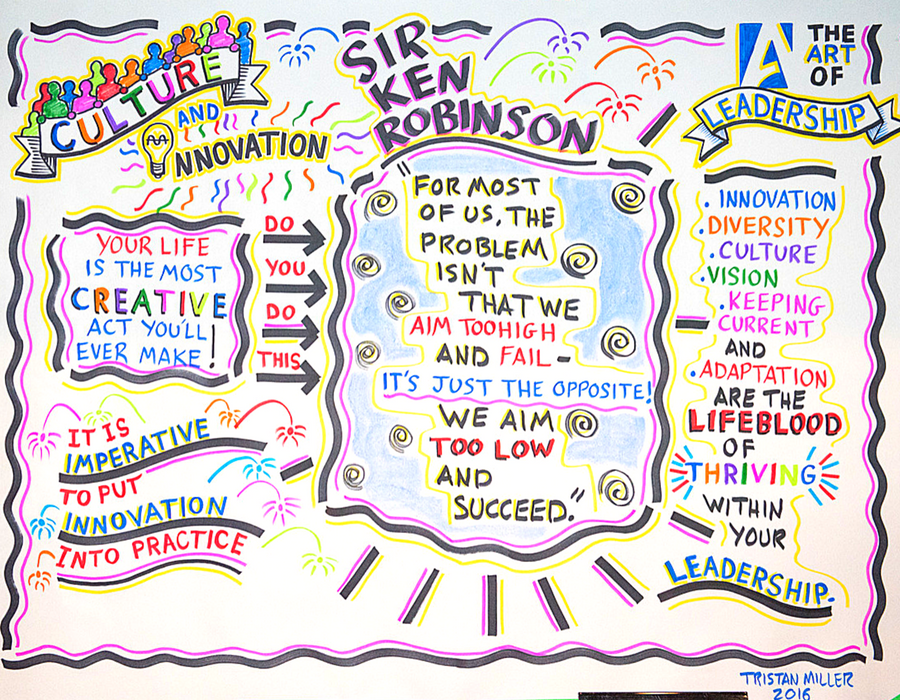 CULTURE
AND
INNOVATION
YOUR LIFE
IS THE MOST
CREATIVE
ACT YOU'LL
EVER MAKE!
DO
YOU
DO
THIS
IT IS
IMPERATIVE
TO PUT
INNOVATION
INTO PRACTICE
SIR
KEN
ROBINSON
"FOR MOST
OF US, THE
PROBLEM
ISN'T
THAT WE
AIM TOO HIGH
AND FAIL-
IT'S JUST THE OPPOSITE!
WE AIM
TOO LOW
AND
SUCCEED."
A THE
ART
OF
LEADERSHIP
. INNOVATION
.DIVERSITY
.CULTURE
.VISION
.KEEPING
CURRENT
AND
.ADAPTATION
ARE THE
LIFEBLOOD
OF
THRIVING
WITHIN
YOUR
LEADERSHIP.
TRISTAN MILLER
2016